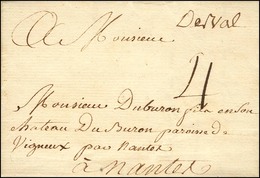 Derval
A Monsieur
4
Monsieur Duburon fils en son
chateau Du Buron paroisse de
Vigneux par Nantes
à Nantes